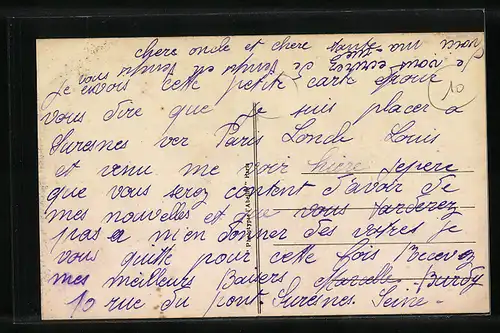 chere oncle et chere tante
Je vous envois cette petite carte pour
vous dire que je suis placer a
Suresnes ver Paris Loncle Louis
et venu me voir hiere Jepere
que vous serez content d'avoir de
mes nouvelles et que vous tarderez
pas a m'en donner des votres Je
vous quitte pour cette fois Recevez
mes meilleurs Baisers Marcelle Burdy
10 rue du pont Suresnes Seine
10